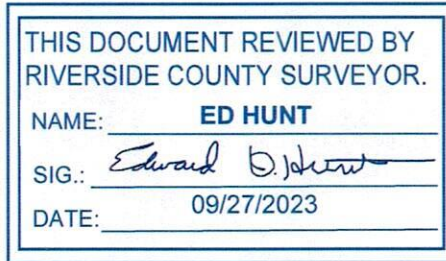 THIS DOCUMENT REVIEWED BY
RIVERSIDE COUNTY SURVEYOR.
NAME: ED HUNT
SIG.: Edward D. Hunt
DATE: 09/27/2023